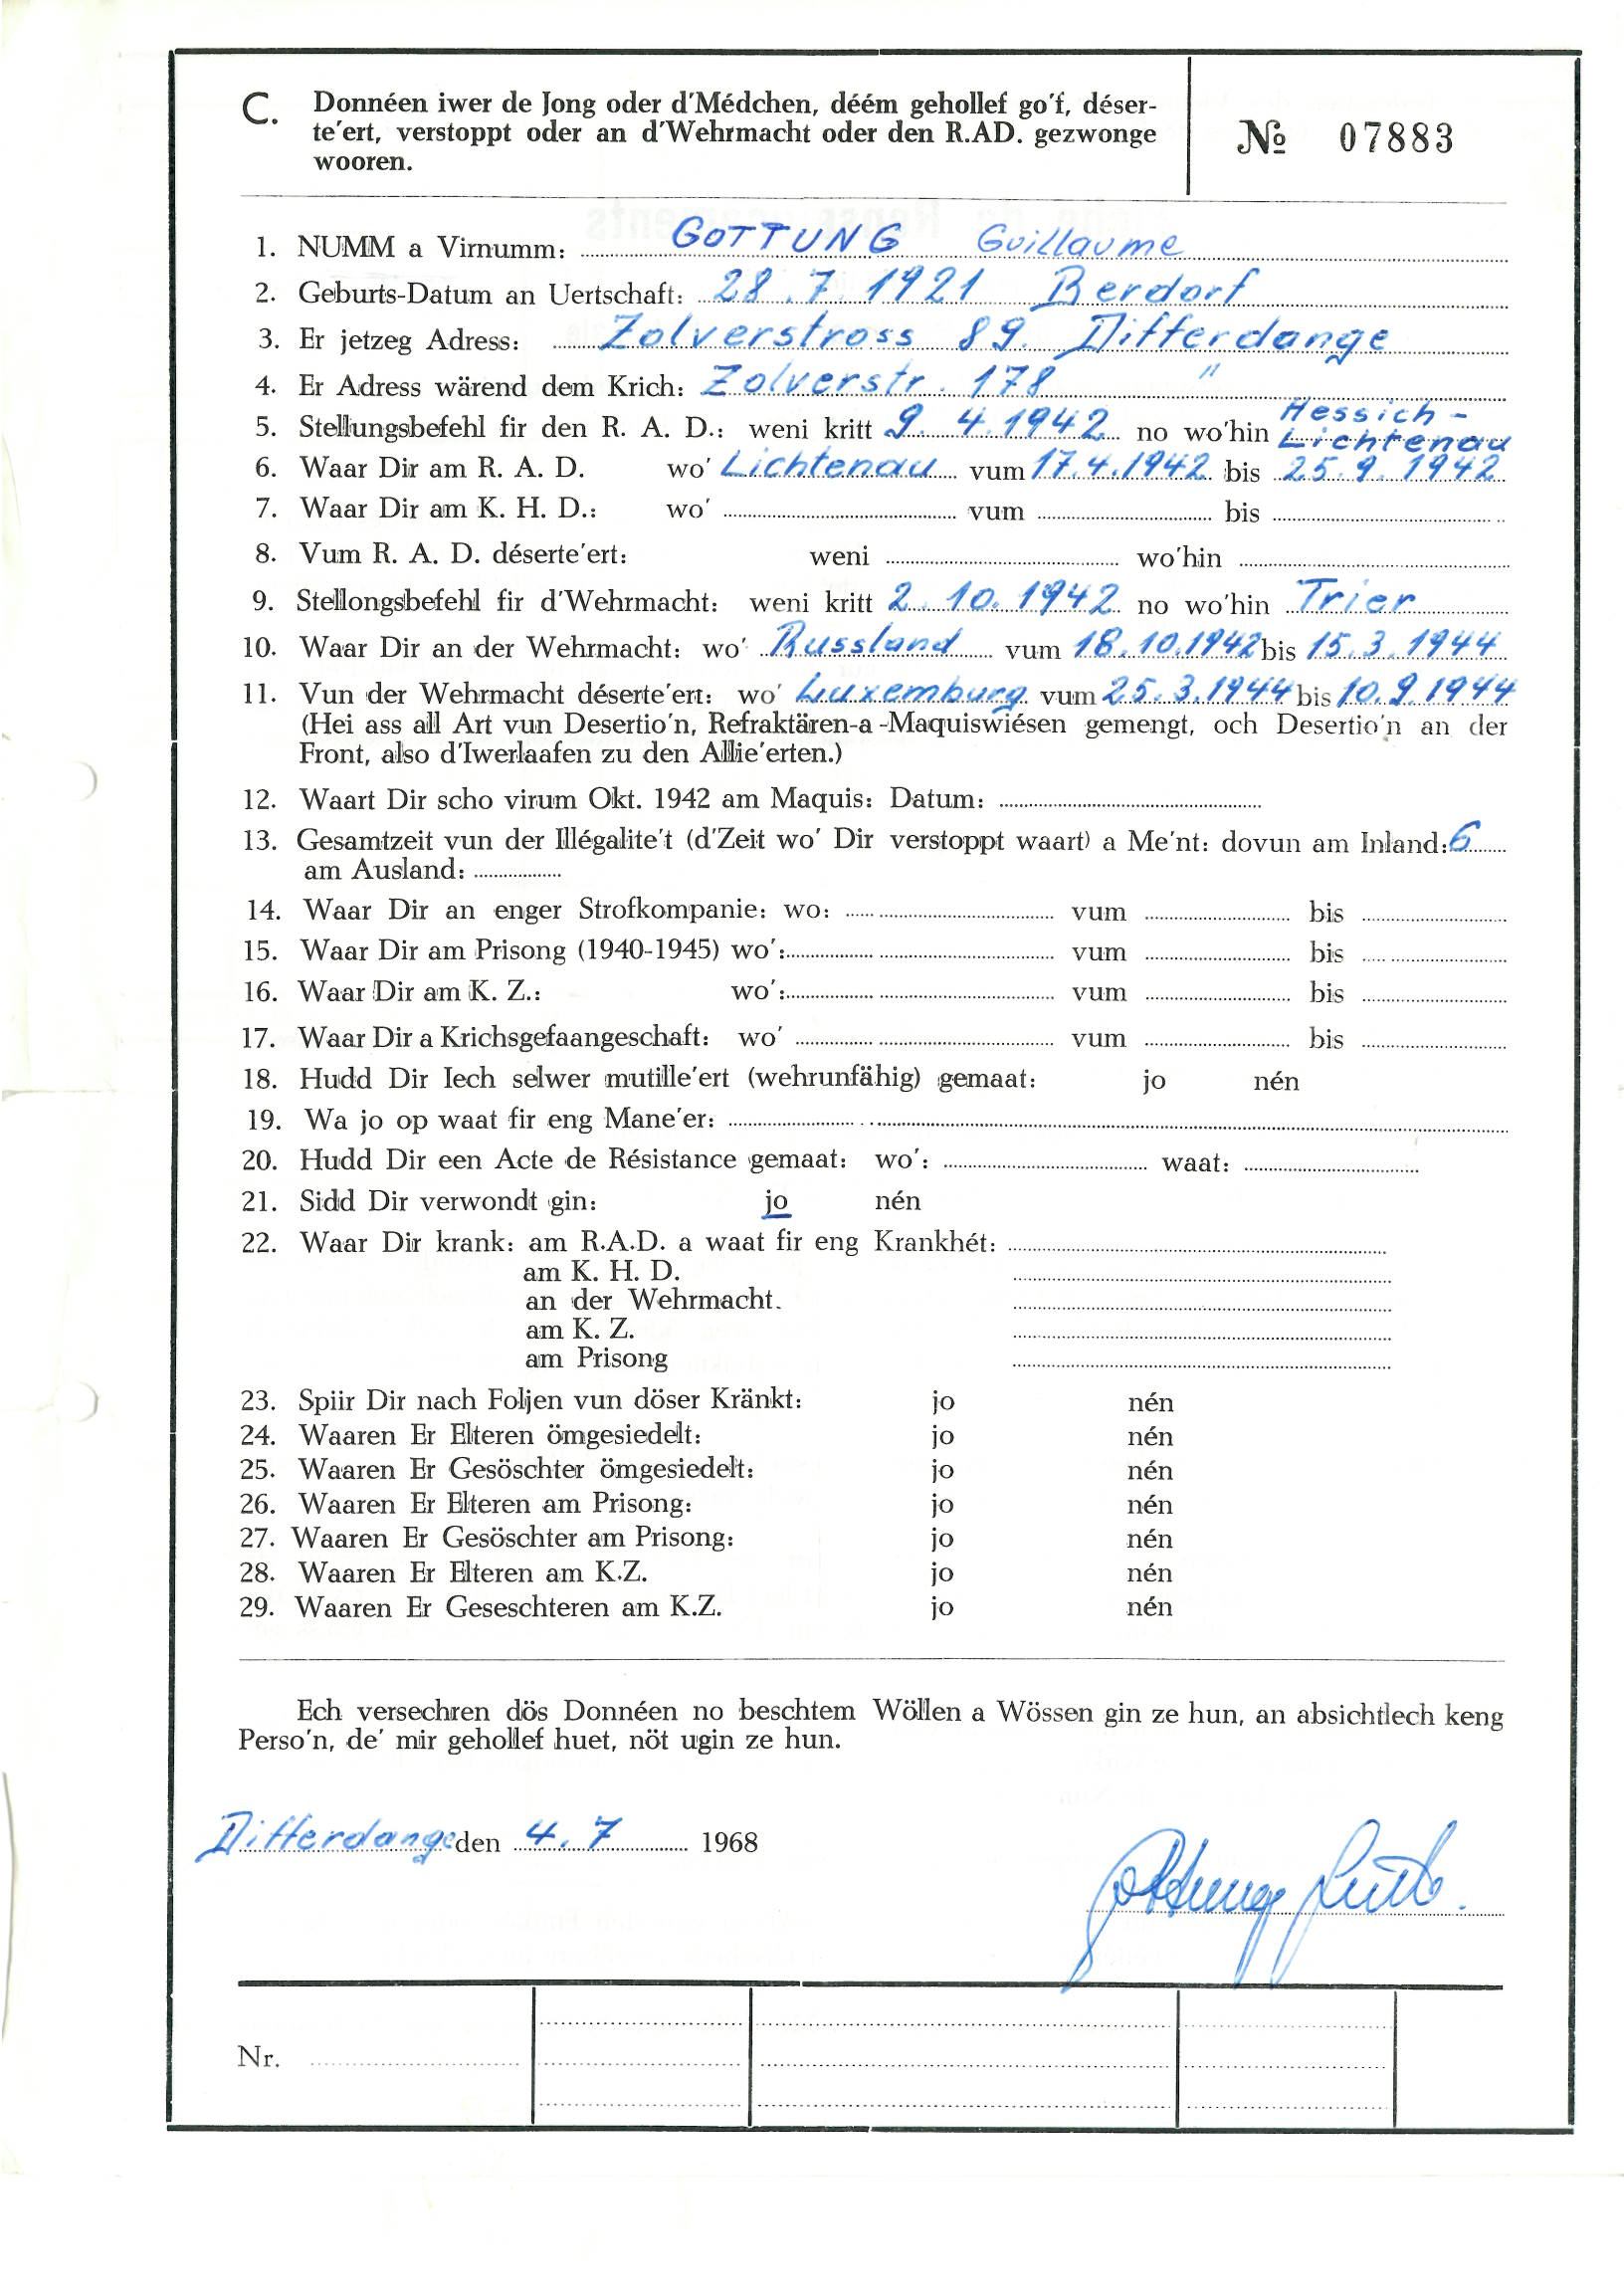 C. Donnéen iwer de Jong oder d'Médchen, déém gehollef go'f, déser-
te'ert, verstoppt oder an d'Wehrmacht oder den R.AD. gezwonge
wooren.
№ 07883
1. NUMM a Virnumm: GOTTUNG Guillaume
2. Geburts-Datum an Uertschaft: 28.7.1921 Berdorf
3. Er jetzeg Adress: Zolverstross 89. Differdange
4. Er Adress wärend dem Krich: Zolverstr. 178 "
5. Stellungsbefehl fir den R. A. D.: weni kritt 9.4.1942 no wo'hin Hessich-
Lichtenau
6. Waar Dir am R. A. D. wo' Lichtenau vum 17.4.1942 bis 25.9.1942
7. Waar Dir am K. H. D.: wo' vum bis
8. Vum R. A. D. déserte'ert: weni wo'hin
9. Stellongsbefehl fir d'Wehrmacht: weni kritt 2.10.1942 no wo'hin Trier
10. Waar Dir an der Wehrmacht: wo' Russland vum 18.10.1942 bis 15.3.1944
11. Vun der Wehrmacht déserte'ert: wo' Luxemburg vum 25.3.1944 bis 10.9.1944
(Hei ass all Art vun Desertio'n, Refraktären-a-Maquiswiésen gemengt, och Desertio'n an der
Front, also d'Iwerlaafen zu den Allie'erten.)
12. Waart Dir scho virum Okt. 1942 am Maquis: Datum:
13. Gesamtzeit vun der Illégalite't (d'Zeit wo' Dir verstoppt waart) a Me'nt: dovun am Inland: 6
am Ausland:
14. Waar Dir an enger Strofkompanie: wo: vum bis
15. Waar Dir am Prisong (1940-1945) wo': vum bis
16. Waar Dir am K. Z.: wo': vum bis
17. Waar Dir a Krichsgefaangeschaft: wo' vum bis
18. Hudd Dir Iech selwer mutille'ert (wehrunfähig) gemaat: jo nén
19. Wa jo op waat fir eng Mane'er:
20. Hudd Dir een Acte de Résistance gemaat: wo': waat:
21. Sidd Dir verwondt gin: jo nén
22. Waar Dir krank: am R.A.D. a waat fir eng Krankhét:
am K. H. D.
an der Wehrmacht.
am K. Z.
am Prisong
23. Spiir Dir nach Foljen vun döser Kränkt: jo nén
24. Waaren Er Elteren ömgesiedelt: jo nén
25. Waaren Er Gesöschter ömgesiedelt: jo nén
26. Waaren Er Elteren am Prisong: jo nén
27. Waaren Er Gesöschter am Prisong: jo nén
28. Waaren Er Elteren am K.Z. jo nén
29. Waaren Er Geseschteren am K.Z. jo nén
Ech versechren dös Donnéen no beschtem Wöllen a Wössen gin ze hun, an absichtlech keng
Perso'n, de' mir gehollef huet, nöt ugin ze hun.
Differdange den 4.7 1968
Gottung
Nr.